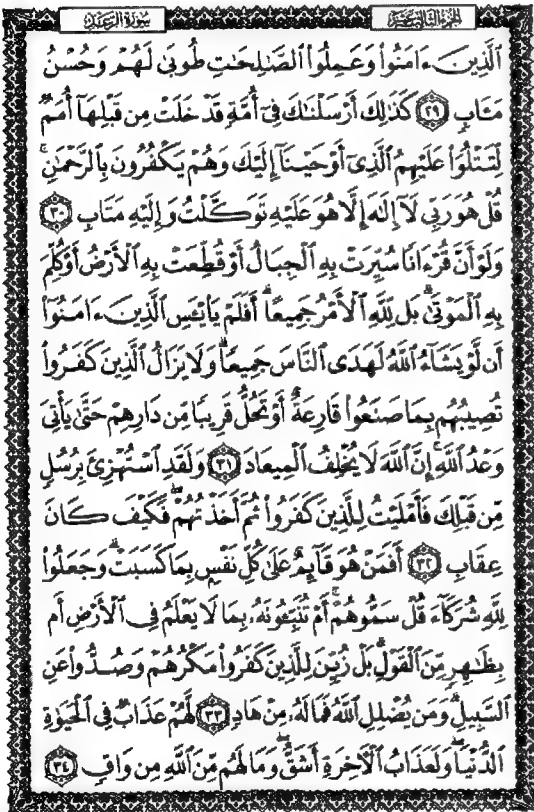 سورة الرعد الجزء الثالث عشر
ٱلَّذِينَ ءَامَنُوا۟ وَعَمِلُوا۟ ٱلصَّـٰلِحَـٰتِ طُوبَىٰ لَهُمْ وَحُسْنُ
مَـَٔابٍ ٢٩ كَذَٰلِكَ أَرْسَلْنَـٰكَ فِىٓ أُمَّةٍ قَدْ خَلَتْ مِن قَبْلِهَآ أُمَمٌ
لِّتَتْلُوَا۟ عَلَيْهِمُ ٱلَّذِىٓ أَوْحَيْنَآ إِلَيْكَ وَهُمْ يَكْفُرُونَ بِٱلرَّحْمَـٰنِ ۚ
قُلْ هُوَ رَبِّى لَآ إِلَـٰهَ إِلَّا هُوَ عَلَيْهِ تَوَكَّلْتُ وَإِلَيْهِ مَتَابِ ٣٠
وَلَوْ أَنَّ قُرْءَانًا سُيِّرَتْ بِهِ ٱلْجِبَالُ أَوْ قُطِّعَتْ بِهِ ٱلْأَرْضُ أَوْ كُلِّمَ
بِهِ ٱلْمَوْتَىٰ ۗ بَل لِّلَّهِ ٱلْأَمْرُ جَمِيعًا ۗ أَفَلَمْ يَا۟يْـَٔسِ ٱلَّذِينَ ءَامَنُوٓا۟
أَن لَّوْ يَشَآءُ ٱللَّهُ لَهَدَى ٱلنَّاسَ جَمِيعًا ۗ وَلَا يَزَالُ ٱلَّذِينَ كَفَرُوا۟
تُصِيبُهُم بِمَا صَنَعُوا۟ قَارِعَةٌ أَوْ تَحُلُّ قَرِيبًا مِّن دَارِهِمْ حَتَّىٰ يَأْتِىَ
وَعْدُ ٱللَّهِ ۚ إِنَّ ٱللَّهَ لَا يُخْلِفُ ٱلْمِيعَادَ ٣١ وَلَقَدِ ٱسْتُهْزِئَ بِرُسُلٍ
مِّن قَبْلِكَ فَأَمْلَيْتُ لِلَّذِينَ كَفَرُوا۟ ثُمَّ أَخَذْتُهُمْ ۖ فَكَيْفَ كَانَ
عِقَابِ ٣٢ أَفَمَنْ هُوَ قَآئِمٌ عَلَىٰ كُلِّ نَفْسٍۭ بِمَا كَسَبَتْ ۗ وَجَعَلُوا۟
لِلَّهِ شُرَكَآءَ قُلْ سَمُّوهُمْ ۚ أَمْ تُنَبِّـُٔونَهُۥ بِمَا لَا يَعْلَمُ فِى ٱلْأَرْضِ أَم
بِظَـٰهِرٍ مِّنَ ٱلْقَوْلِ ۗ بَلْ زُيِّنَ لِلَّذِينَ كَفَرُوا۟ مَكْرُهُمْ وَصُدُّوا۟ عَنِ
ٱلسَّبِيلِ ۗ وَمَن يُضْلِلِ ٱللَّهُ فَمَا لَهُۥ مِنْ هَادٍ ٣٣ لَّهُمْ عَذَابٌ فِى ٱلْحَيَوٰةِ
ٱلدُّنْيَا ۖ وَلَعَذَابُ ٱلْـَٔاخِرَةِ أَشَقُّ ۖ وَمَا لَهُم مِّنَ ٱللَّهِ مِن وَاقٍ ٣٤